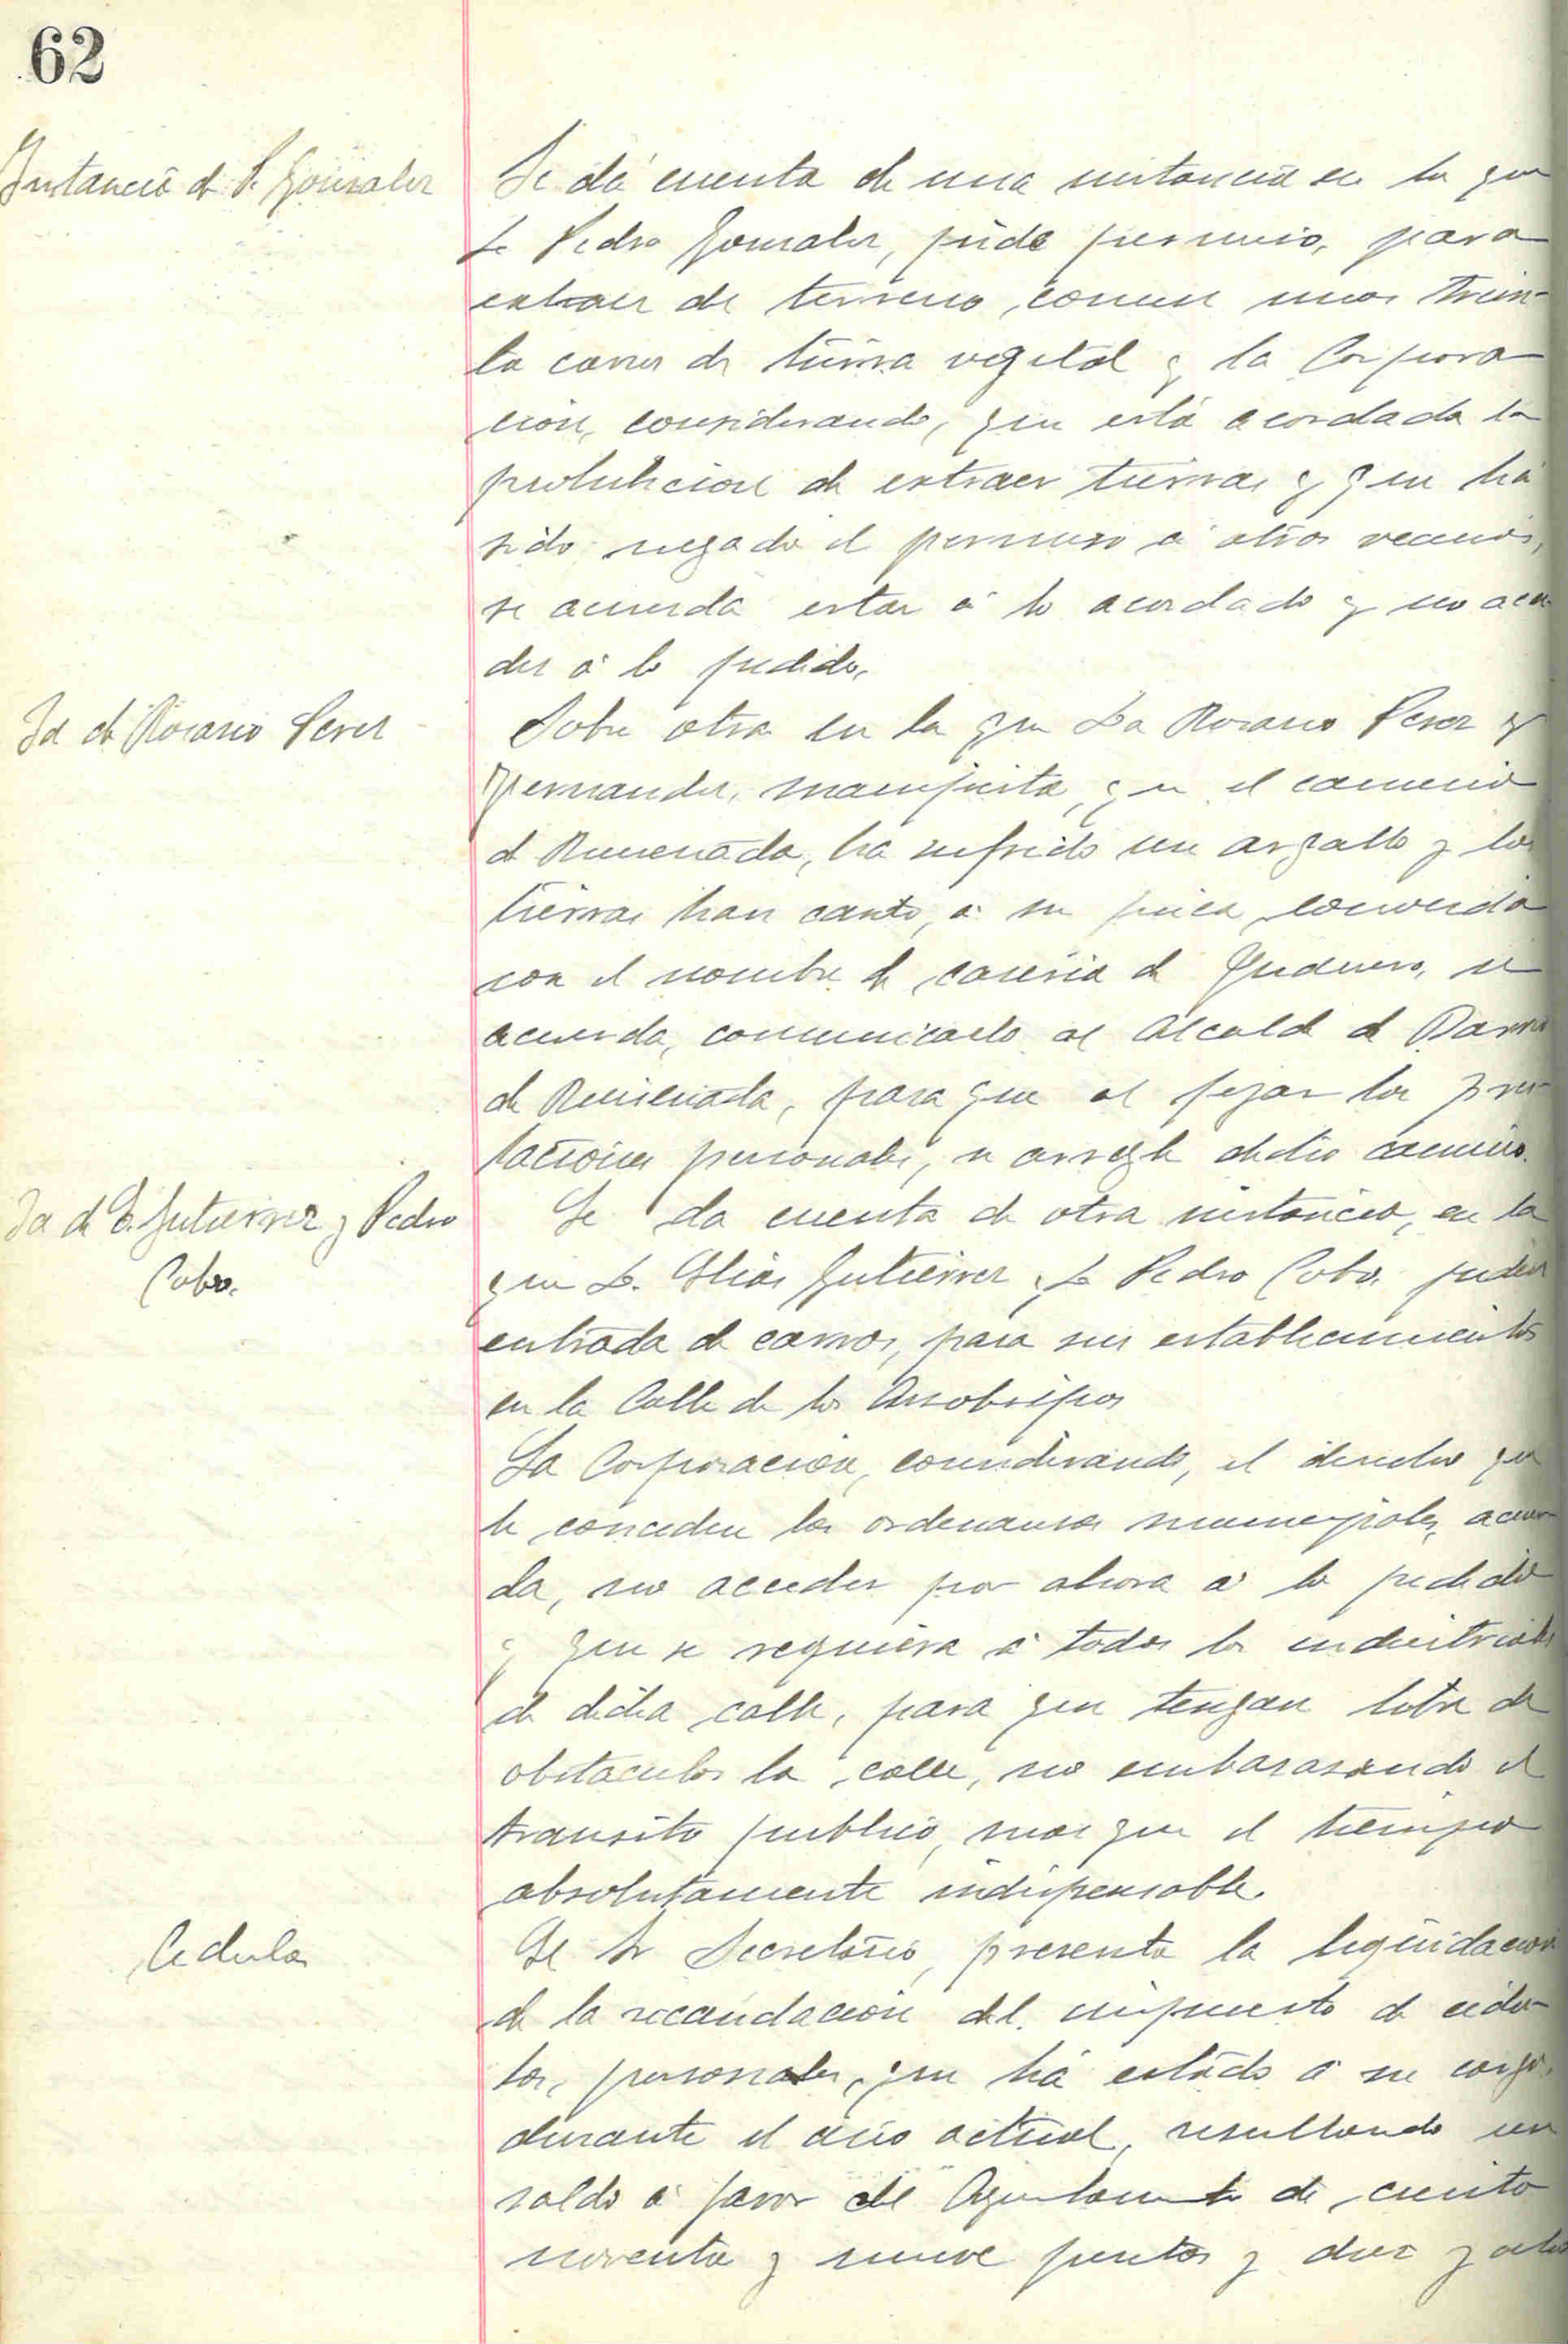 62
Instancia de P. Gonzalez
Se dá cuenta de una instancia en la que
D. Pedro Gonzalez, pide permiso, para
extraer de terreno comun unos trein-
ta carros de tierra vegetal y la Corpora
cion, considerando, que está acordada la
prohibicion de extraer tierras y que há
sido negado el permiso á otros vecinos,
se acuerda estar á lo acordado y no acce
der á lo pedido.
Id de Rosario Perez
Sobre otra en la que Da Rosario Perez y
Fernandez, manifiesta, que el camino
de Rumenada, ha sufrido un argallo y las
tierras han caido, á su finca, conocida
con el nombre de caseria de, se
acuerda, comunicarlo al Alcalde de Barrio
de Rumenada, para que al fijar las pres-
taciones personales, se arregle dicho camino.
Id de E. Gutierrez y Pedro
Cobo.
Se da cuenta de otra instancia, en la
que D. Elias Gutierrez y D. Pedro Cobo, piden
entrada de carros, para sus establecimientos
en la Calle de los Arzobispos
La Corporacion, considerando, el derecho que
le conceden las ordenanzas municipales, acuer-
da, no acceder por ahora á lo pedido
y que se requiera á todos los industriales
de dicha calle, para que tengan libre de
obstaculos la calle, no embarazando el
transito publico, mas que el tiempo
absolutamente indispensable.
Cedulas
El Sr Secretario, presenta la liquidacion
de la recaudacion del impuesto de cedu-
las, personales, que há estado á su cargo,
durante el año actual, resultando un
saldo á favor del Ayuntamto de ciento
noventa y nueve pesetas y diez y ocho